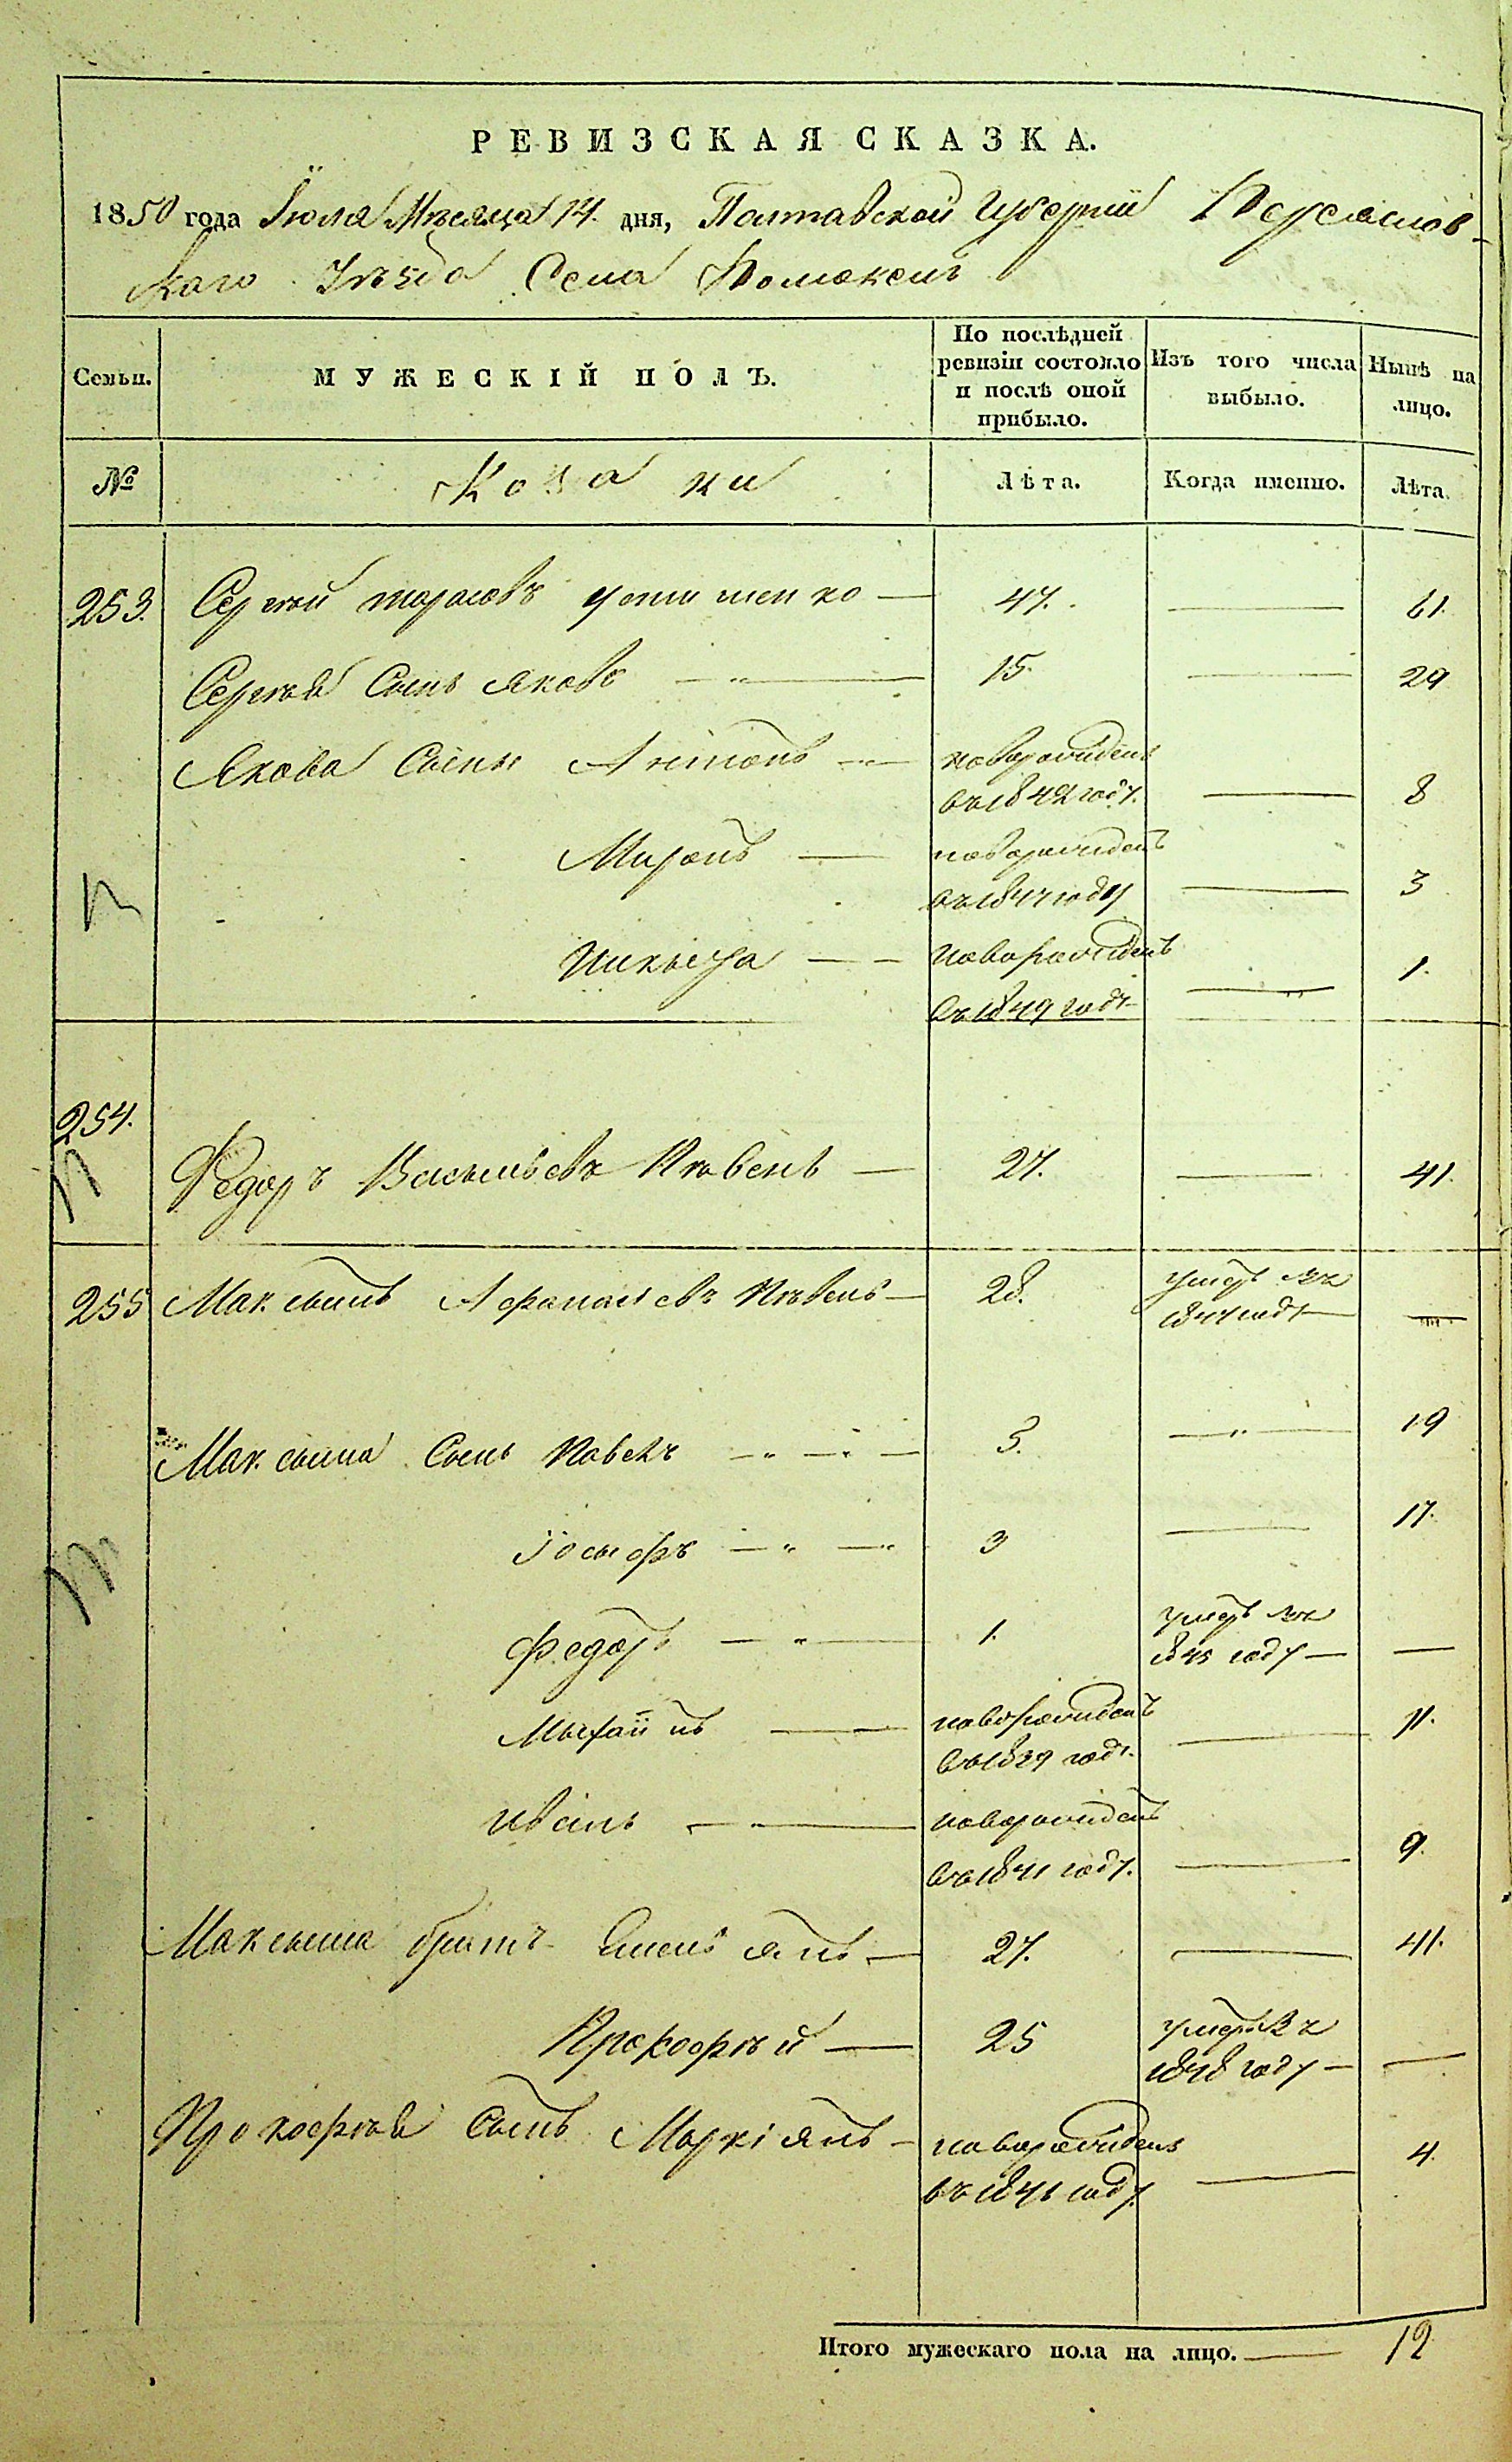 РЕВИЗСКАЯ СКАЗКА.
1850 года Іюля Мѣсяца 14. дня, Полтавской Губерніи Переяслов-
скаго Уѣзда Села Помокелъ
Семьи. МУЖЕСКІЙ ПОЛЪ. По послѣдней ревизіи состояло и послѣ оной прибыло. Изъ того числа выбыло. Нынѣ на лицо.
№ Козаки Лѣта. Когда именно. Лѣта.
253. Сергѣй Тарасовъ Устименко — 47. — 61.
Сергѣя Сынъ Яковъ — 15. — 29
Якова Сыны Антонъ — новорожденъ
въ 1842 году. — 8
Миронъ — новорожденъ
въ 1847 году — 3
Никыта — новорожденъ
въ 1849 году — 1.
254.
Федоръ Васыльевъ Пѣвень — 27. — 41.
255 Максымъ Афанасіевъ Пѣвень — 28. умеръ въ
1844 году — —
Максыма Сынъ Павелъ — 5. — 19
Іосыфъ — 3 — 17.
Федоръ — 1. умеръ въ
1845 году — —
Мыхайлъ — новорожденъ
въ 1839 году. — 11.
Иванъ — новорожденъ
въ 1841 году. — 9.
Максыма братъ Емельянъ — 27. — 41.
Прокофѣй — 25 умеръ въ
1848 году — —
Прокофѣя Сынъ Маркіянъ — новорожденъ
въ 1846 году. — 4.
Итого мужескаго пола на лицо. — 12